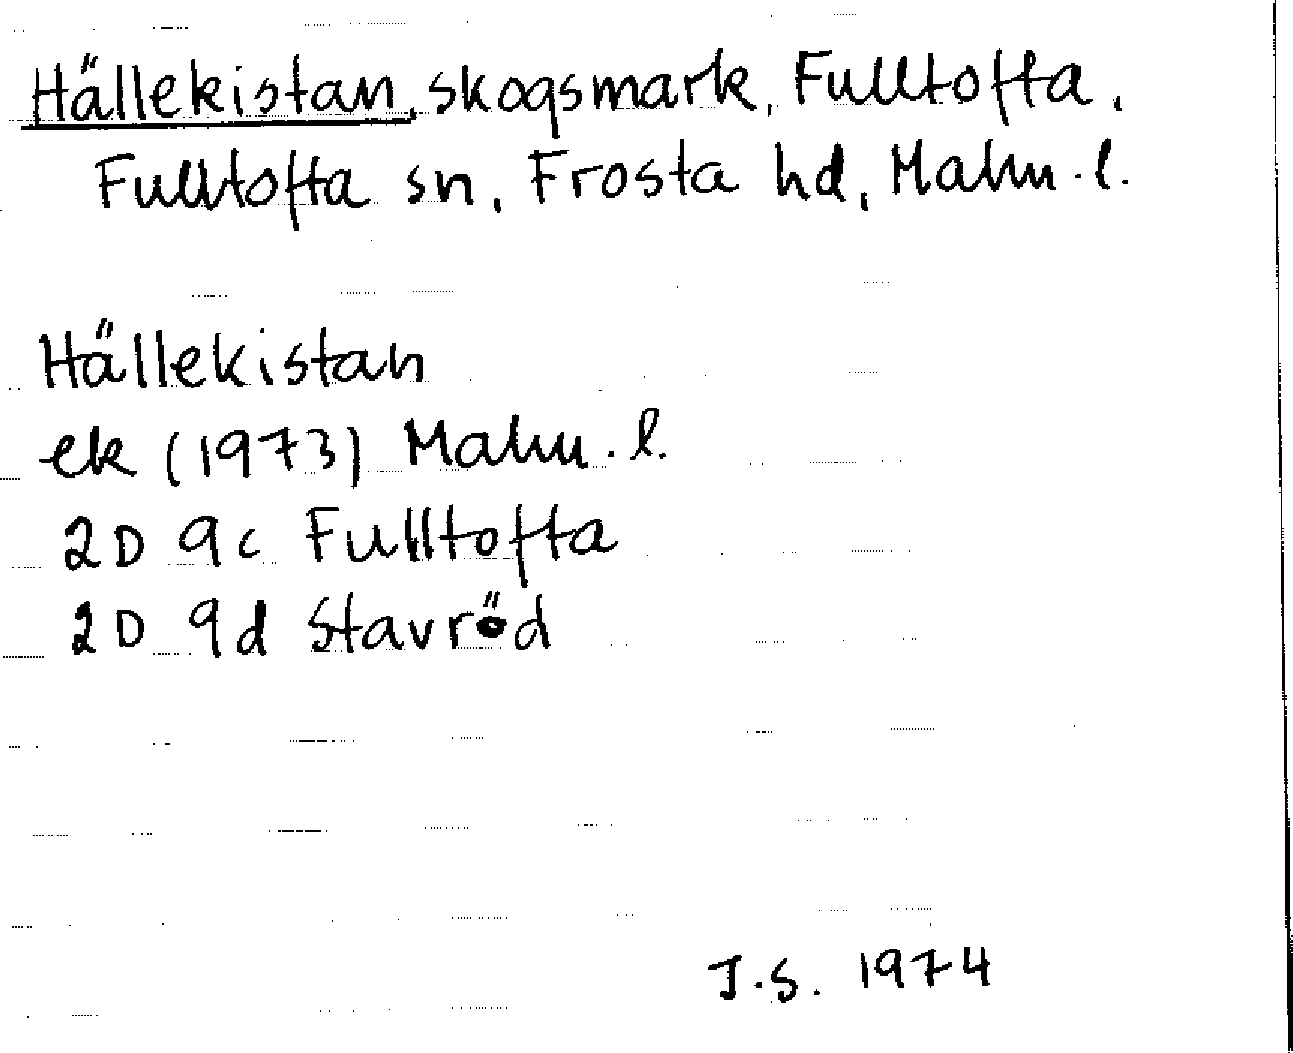 Hällekistan, skogsmark, Fulltofta,
Fulltofta sn, Frosta hd, Malm.l.
Hällekistan
ek (1973) Malm.l.
2D 9c Fulltofta
2D 9d Stavröd
J.S. 1974